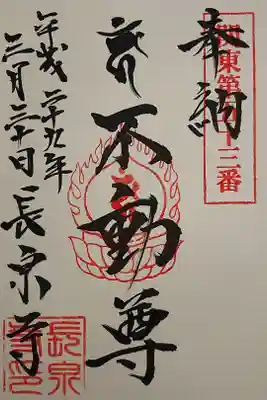 奉納
関東第十三番
不動尊
平成二十九年
三月二十日 長泉寺
長泉寺印